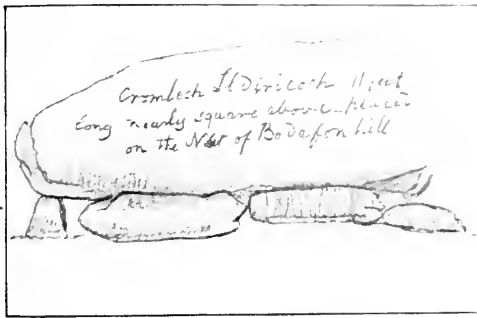 Cromlech 11 feet
long nearly square above placed
on the NW of Bodafon hill